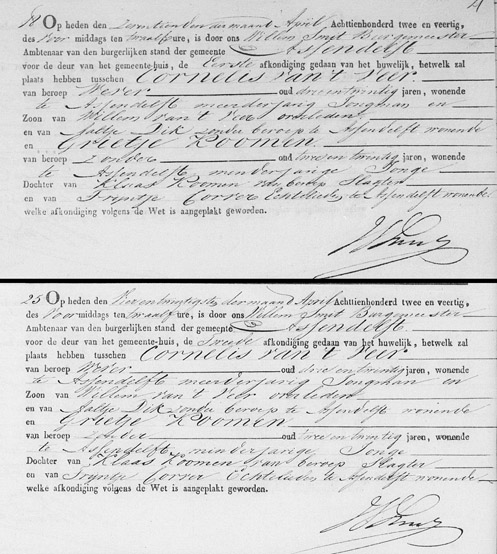 Op heden den Zeventienden der maand April, Achttienhonderd twee en veertig,
des Voor middags ten twaalf ure, is door ons Willem Smit Burgemeester
Ambtenaar van den burgerlijken stand der gemeente Assendelft
voor de deur van het gemeente-huis, de Eerste afkondiging gedaan van het huwelijk, hetwelk zal
plaats hebben tusschen Cornelis van 't Veer
van beroep Wever oud drie en twintig jaren, wonende
te Assendelft meerderjarig Jongman en
Zoon van Willem van 't Veer overleden
en van Aaltje Dik zonder beroep te Assendelft wonende
en Grietje Roomen
van beroep Zonder oud twee en twintig jaren, wonende
te Assendelft minderjarige Jonge
Dochter van Klaas Roomen van beroep Slagter
en van Trijntje Correr Echtelieden, te Assendelft wonende.
welke afkondiging volgens de Wet is aangeplakt geworden.
WSmit
25 Op heden den Vier en twintigste der maand April Achttienhonderd twee en veertig,
des Voor middags ten twaalf ure, is door ons Willem Smit Burgemeester
Ambtenaar van den burgerlijken stand der gemeente Assendelft
voor de deur van het gemeente-huis, de Tweede afkondiging gedaan van het huwelijk, hetwelk zal
plaats hebben tusschen Cornelis van 't Veer
van beroep Wever oud drie en twintig jaren, wonende
te Assendelft meerderjarig Jongman en
Zoon van Willem van 't Veer overleden
en van Aaltje Dik zonder beroep te Assendelft wonende
en Grietje Roomen
van beroep Zonder oud twee en twintig jaren, wonende
te Assendelft minderjarige Jonge
Dochter van Klaas Roomen van beroep Slagter
en van Trijntje Correr Echtelieden, te Assendelft wonende.
welke afkondiging volgens de Wet is aangeplakt geworden.
WSmit